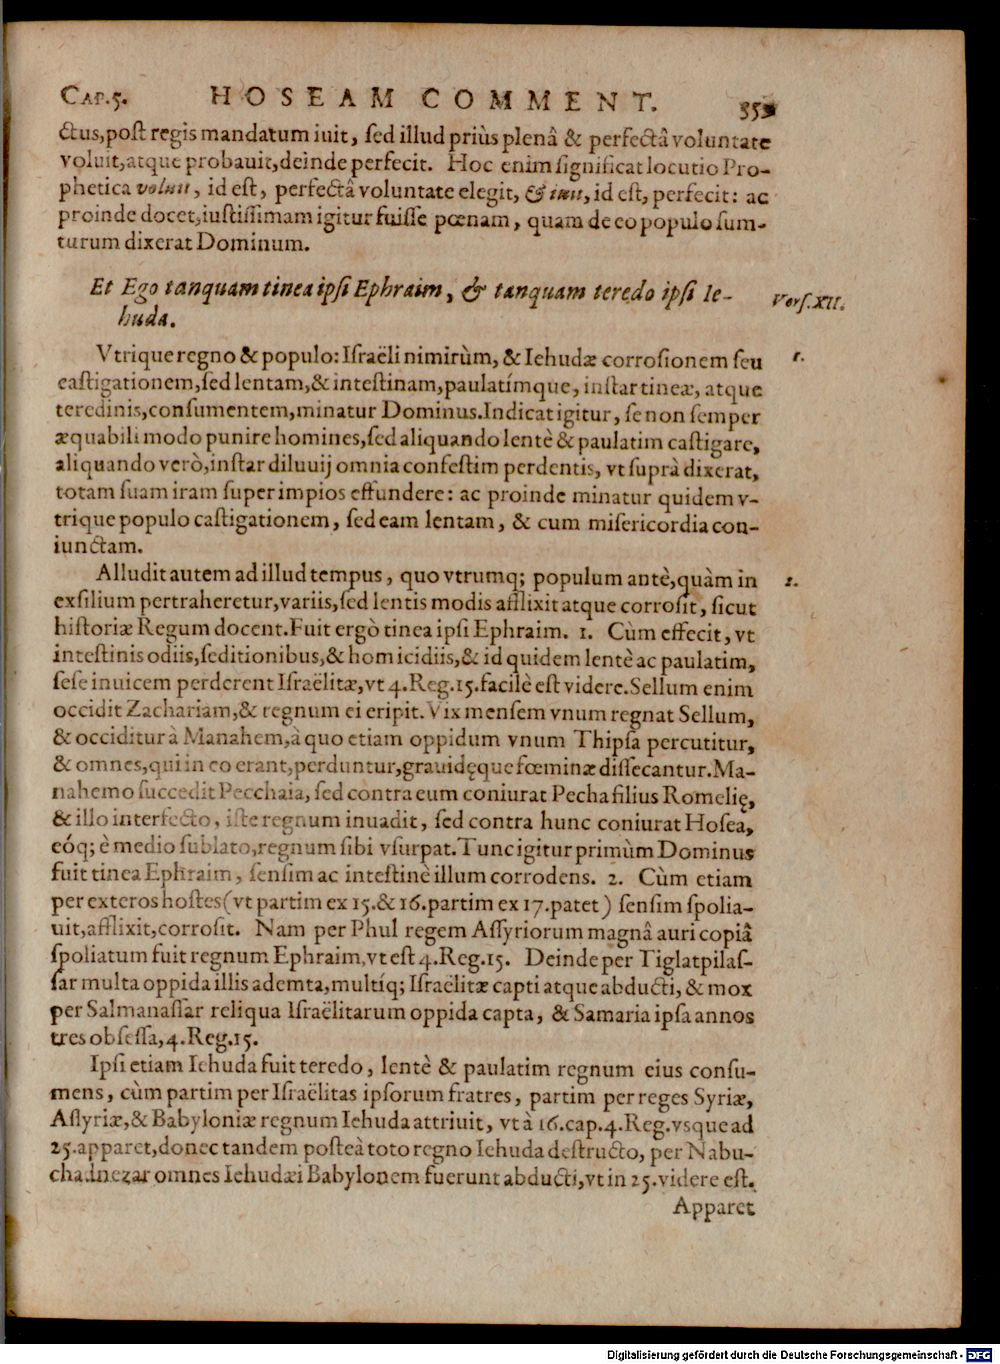 CAP.5. HOSEAM COMMENT. 35
ctus,post regis mandatum iuit, sed illud priùs plenâ & perfectâ voluntate
voluit,atque probauit,deinde perfecit. Hoc enim significat locutio Pro-
phetica voluit, id est, perfectâ voluntate elegit, & iuit, id est, perfecit: ac
proinde docet,iustissimam igitur fuisse pœnam, quam de eo populo sum-
turum dixerat Dominum.
Et Ego tanquam tinea ipsi Ephraim, & tanquam teredo ipsi Ie- Vers.XII.
huda.
Vtrique regno & populo: Israëli nimirùm, & Iehudæ corrosionem seu 1.
castigationem,sed lentam,& intestinam,paulatímque, instar tineæ, atque
teredinis,consumentem,minatur Dominus.Indicat igitur, se non semper
æquabili modo punire homines,sed aliquando lentè & paulatim castigare,
aliquando verò,instar diluuij omnia confestim perdentis, vt suprà dixerat,
totam suam iram super impios effundere: ac proinde minatur quidem v-
trique populo castigationem, sed eam lentam, & cum misericordia con-
iunctam.
Alludit autem ad illud tempus, quo vtrumq; populum antè,quàm in 2.
exsilium pertraheretur,variis,sed lentis modis afflixit atque corrosit, sicut
historiæ Regum docent.Fuit ergò tinea ipsi Ephraim. 1. Cùm effecit, vt
intestinis odiis,seditionibus,& homicidiis,& id quidem lentè ac paulatim,
sese inuicem perderent Israëlitæ,vt 4.Reg.15.facilè est videre.Sellum enim
occidit Zachariam,& regnum ei eripit.Vix mensem vnum regnat Sellum,
& occiditur à Manahem,à quo etiam oppidum vnum Thipsa percutitur,
& omnes,qui in eo erant,perduntur,grauidęque fœminæ dissecantur.Ma-
nahemo succedit Pecchaia, sed contra eum coniurat Pecha filius Romelię,
& illo interfecto, iste regnum inuadit, sed contra hunc coniurat Hosea,
eóq; è medio sublato,regnum sibi vsurpat.Tunc igitur primùm Dominus
fuit tinea Ephraim, sensim ac intestinè illum corrodens. 2. Cùm etiam
per exteros hostes(vt partim ex 15.& 16.partim ex 17.patet) sensim spolia-
uit,afflixit,corrosit. Nam per Phul regem Assyriorum magnâ auri copiâ
spoliatum fuit regnum Ephraim,vt est 4.Reg.15. Deinde per Tiglatpilas-
sar multa oppida illis ademta,multíq; Israëlitæ capti atque abducti, & mox
per Salmanassar reliqua Israëlitarum oppida capta, & Samaria ipsa annos
tres obsessa,4.Reg.15.
Ipsi etiam Iehuda fuit teredo, lentè & paulatim regnum eius consu-
mens, cùm partim per Israëlitas ipsorum fratres, partim per reges Syriæ,
Assyriæ,& Babyloniæ regnum Iehuda attriuit, vt à 16.cap.4.Reg.vsque ad
25.apparet,donec tandem posteà toto regno Iehuda destructo, per Nabu-
chadnezar omnes Iehudæi Babylonem fuerunt abducti,vt in 25.videre est.
Apparet
Digitalisierung gefördert durch die Deutsche Forschungsgemeinschaft - DFG